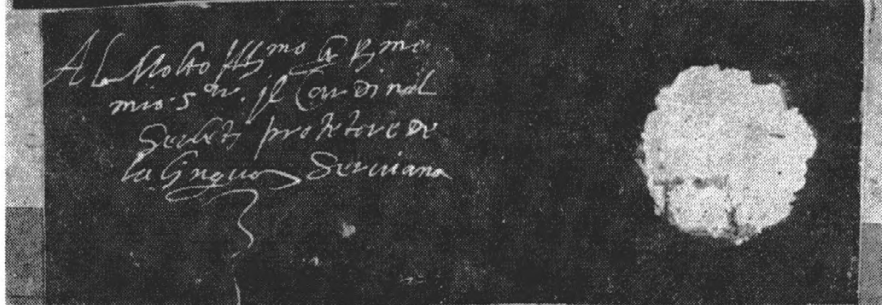 Al Molto Ill.mo et R.mo
mio s.or il Cardinal
protetore de
la lingua Serviana